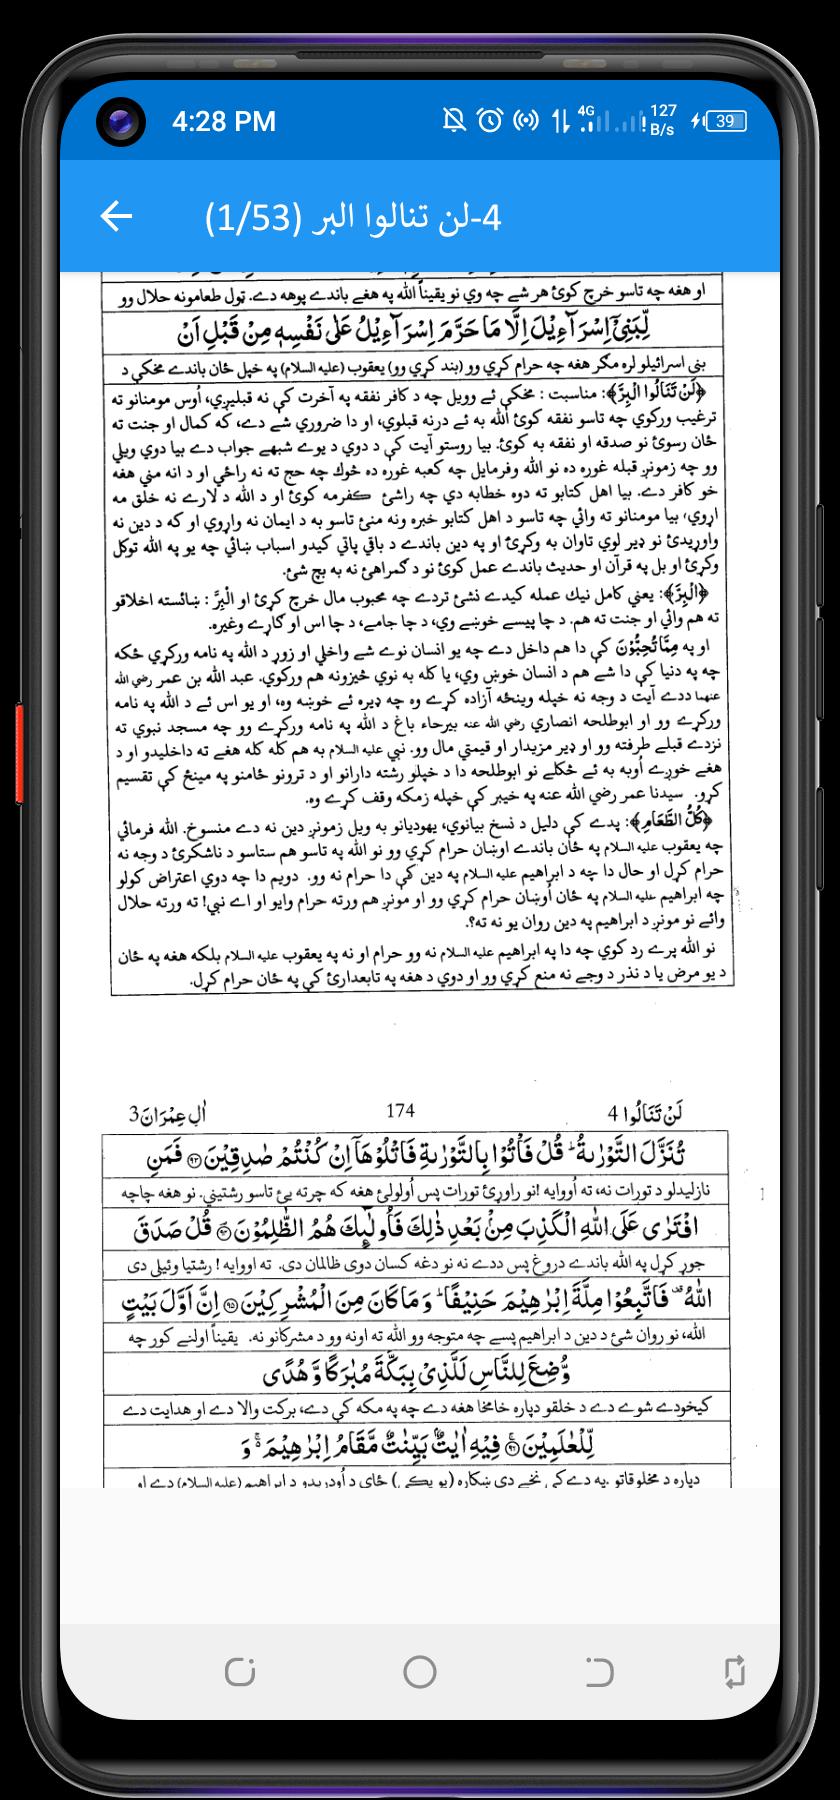 4:28 PM
4G
127
B/s
39
4-لن تنالوا البر (1/53)
او هغه چه تاسو خرچ کوئ هر شے چه وي نو يقيناً الله په هغے باندے پوهه دے. ټول طعامونه حلال وو
لِّبَنِيْٓ اِسْرَآءِيْلَ اِلَّا مَا حَرَّمَ اِسْرَآءِيْلُ عَلٰى نَفْسِهٖ مِنْ قَبْلِ اَنْ
بني اسرائيلو لره مګر هغه چه حرام کړي وو (بند کړي وو) يعقوب (عليه السلام) په خپل ځان باندے مخکي د
﴿لَنْ تَنَالُوا الْبِرَّ﴾: مناسبت : مخکي ئے وويل چه د کافر نفقه په آخرت کي نه قبليږي، اُوس مومنانو ته
ترغيب ورکوي چه تاسو نفقه کوئ الله به ئے درنه قبلوي، او دا ضروري شے دے، که کمال او جنت ته
ځان رسوئ نو صدقه او نفقه به کوئ. بيا روستو آيت کي د دوي د يوے شبهے جواب دے بيا دوي ويلي
وو چه زمونږ قبله غوره ده نو الله وفرمايل چه کعبه غوره ده څوك چه حج ته نه راځي او د انه مني هغه
خو کافر دے. بيا اهل کتابو ته دوه خطابه دي چه راشئ كفرمه کوئ او د الله د لارے نه خلق مه
اړوي، بيا مومنانو ته وائي چه تاسو د اهل کتابو خبره ونه منئ تاسو به د ايمان نه واړوي او که د دين نه
واوړيدئ نو ډير لوي تاوان به وکړئ او په دين باندے د باقي پاتي کيدو اسباب ښائي چه يو په الله توکل
وکړئ او بل په قرآن او حديث باندے عمل کوئ نو د ګمراهئ نه به بچ شئ.
﴿الْبِرَّ﴾: يعني کامل نيك عمله کيدے نشئ تردے چه محبوب مال خرچ کړئ او الْبِرَّ : ښائسته اخلاقو
ته هم وائي او جنت ته هم. د چا پيسے خوښے وي، د چا جامے، د چا اس او ګاړے وغيره.
او په مِمَّا تُحِبُّوْنَ کي دا هم داخل دے چه يو انسان نوے شے واخلي او زوړ د الله په نامه ورکړي ځکه
چه په دنيا کي دا شے هم د انسان خوښ وي، يا کله به نوي څيزونه هم ورکوي. عبد الله بن عمر رضي الله
عنهما ددے آيت د وجه نه خپله وينځه آزاده کړے وه چه ډيره ئے خوښه وه، او يو اس ئے د الله په نامه
ورکړے وو او ابوطلحه انصاري رضي الله عنه بيرحاء باغ د الله په نامه ورکړے وو چه مسجد نبوي ته
نزدے قبلے طرفته وو او ډير مزيدار او قيمتي مال وو. نبي عليه السلام به هم کله کله هغے ته داخليدو او د
هغے خوږے اُوبه به ئے څکلے نو ابوطلحه دا د خپلو رشته دارانو او د ترونو ځامنو په مينځ کي تقسيم
کړو. سيدنا عمر رضي الله عنه په خيبر کي خپله زمکه وقف کړے وه.
﴿كُلُّ الطَّعَامِ﴾: پدے کي دليل د نسخ بيانوي، يهوديانو به ويل زمونږ دين نه دے منسوخ. الله فرمائي
چه يعقوب عليه السلام په ځان باندے اوښان حرام کړي وو نو الله په تاسو هم ستاسو د ناشکرئ د وجه نه
حرام کړل او حال دا چه د ابراهيم عليه السلام په دين کي دا حرام نه وو. دويم دا چه دوي اعتراض کولو
چه ابراهيم عليه السلام په ځان اُوښان حرام کړي وو او مونږ هم ورته حرام وايو او اے نبي! ته ورته حلال
وائے نو مونږ د ابراهيم په دين روان يو نه ته؟.
نو الله پرے رد کوي چه دا په ابراهيم عليه السلام نه وو حرام او نه په يعقوب عليه السلام بلکه هغه په ځان
د يو مرض يا د نذر د وجے نه منع کړي وو او دوي د هغه په تابعدارئ کي په ځان حرام کړل.
لَنْ تَنَالُوا 4
174
اٰلِ عِمْرَان3
تُنَزَّلَ التَّوْرٰىةُ ؕ قُلْ فَاْتُوْا بِالتَّوْرٰىةِ فَاتْلُوْهَآ اِنْ كُنْتُمْ صٰدِقِيْنَ ۝۹۳ فَمَنِ
نازليدلو د تورات نه، ته اُووايه !نو راوړئ تورات پس اُولولئ هغه که چرته يئ تاسو رشتيني. نو هغه چاچه
افْتَرٰى عَلَى اللّٰهِ الْكَذِبَ مِنْۢ بَعْدِ ذٰلِكَ فَاُولٰٓئِكَ هُمُ الظّٰلِمُوْنَ ۝۹۴ قُلْ صَدَقَ
جوړ کړل په الله باندے دروغ پس ددے نه نو دغه کسان دوى ظالمان دى. ته اووايه ! رشتيا وئيلى دى
اللّٰهُ ۫ فَاتَّبِعُوْا مِلَّةَ اِبْرٰهِيْمَ حَنِيْفًا ؕ وَمَا كَانَ مِنَ الْمُشْرِكِيْنَ ۝۹۵ اِنَّ اَوَّلَ بَيْتٍ
الله، نو روان شئ د دين د ابراهيم پسے چه متوجه وو الله ته اونه وو د مشرکانو نه. يقيناً اولنے کور چه
وُّضِعَ لِلنَّاسِ لَلَّذِيْ بِبَكَّةَ مُبٰرَكًا وَّهُدًى
کيخودے شوے دے د خلقو دپاره خامخا هغه دے چه په مکه کي دے، برکت والا دے او هدايت دے
لِّلْعٰلَمِيْنَ ۝۹۶ فِيْهِ اٰيٰتٌۢ بَيِّنٰتٌ مَّقَامُ اِبْرٰهِيْمَ ۚ وَ
دپاره د مخلوقاتو .په دے کي نخے دي ښکاره (يو پکي) ځاي د اُودريدو د ابراهيم (عليه السلام) دے او